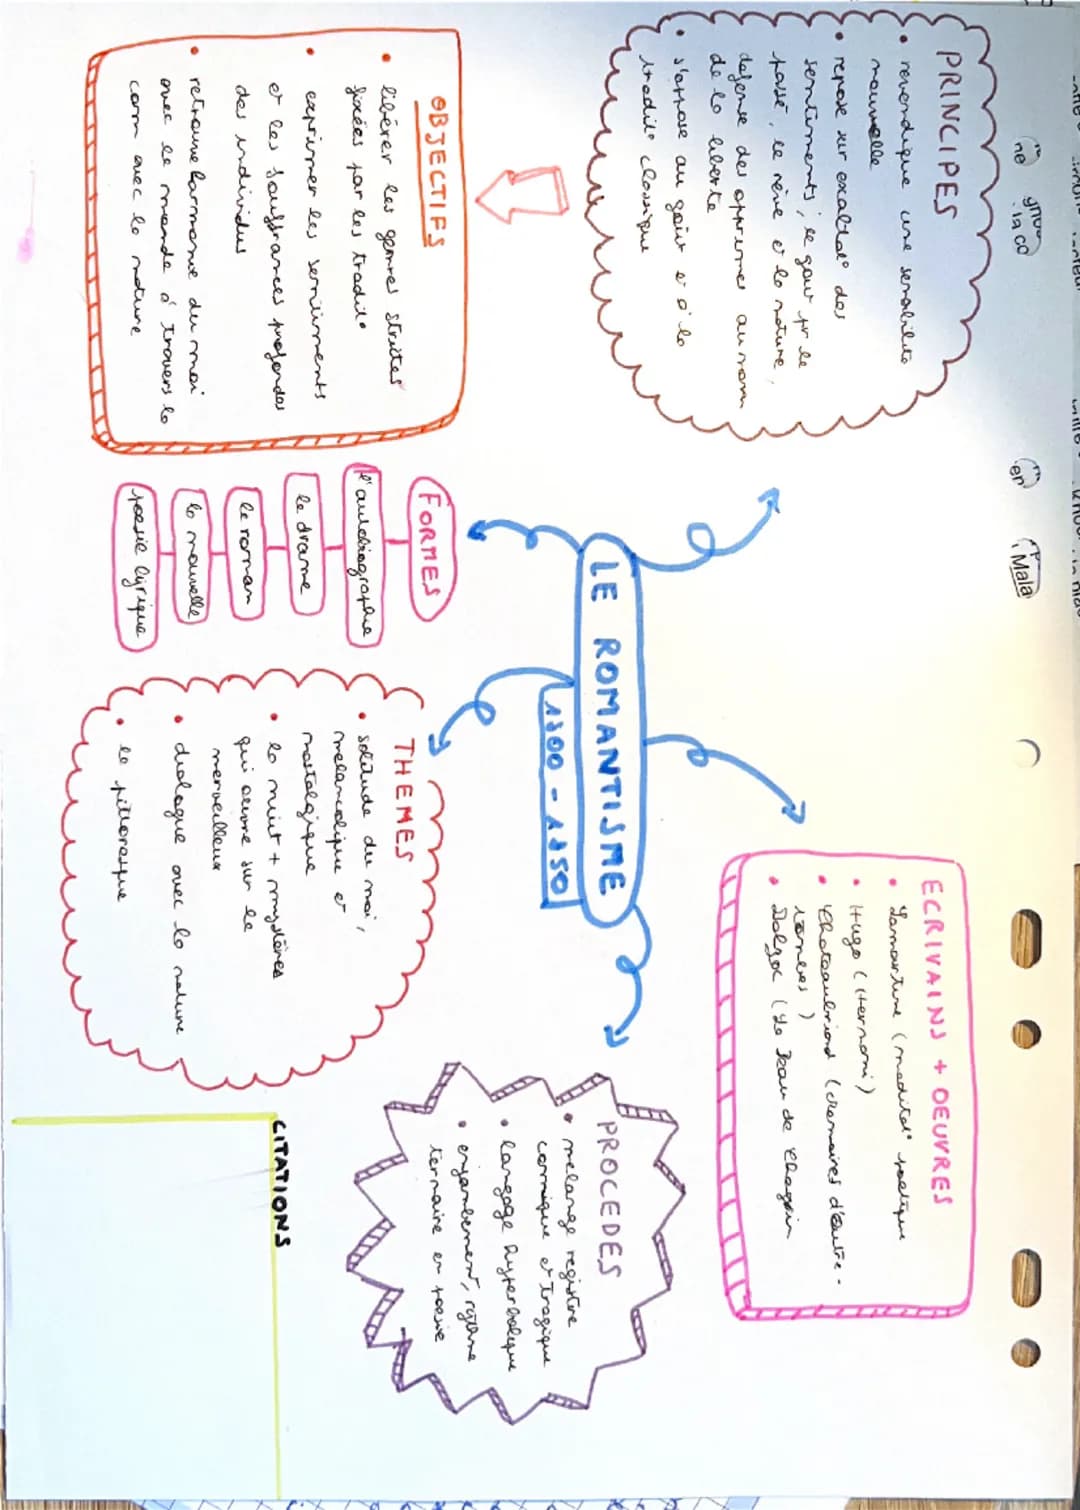 PRINCIPES
• revendique une sensibilite
nouvelle
• repose sur exaltat° des
sentiments, le gout pr le
passé, le rêve et la nature,
defense des opprimes au nom
de la liberte
• s'oppose au goût et à la
tradit° classique
OBJECTIFS
• libérer les genres strictes
fixées par les tradit°
• exprimer les sentiments
et les souffrances profondes
des individus
• retrouve harmonie du moi
avec le monde à travers la
com avec la nature
LE ROMANTISME
1800 - 1850
FORMES
l'autobiographie
le drame
le roman
la nouvelle
poesie lyrique
ECRIVAINS + OEUVRES
• Lamartine (meditat° poetique
• Hugo (Hernani)
• Chateaubriand (memoires d'outre-
tombes)
• Balzac (La Peau de Chagrin
THEMES
• solitude du moi,
melancolique et
nostalgique
• la nuit + mystères
qui ouvre sur le
merveilleux
• dialogue avec la nature
• le pittoresque
PROCEDES
• melange registre
comique et tragique
• langage hyperbolique
• enjambement, rythme
ternaire en poesie
CITATIONS
Mala